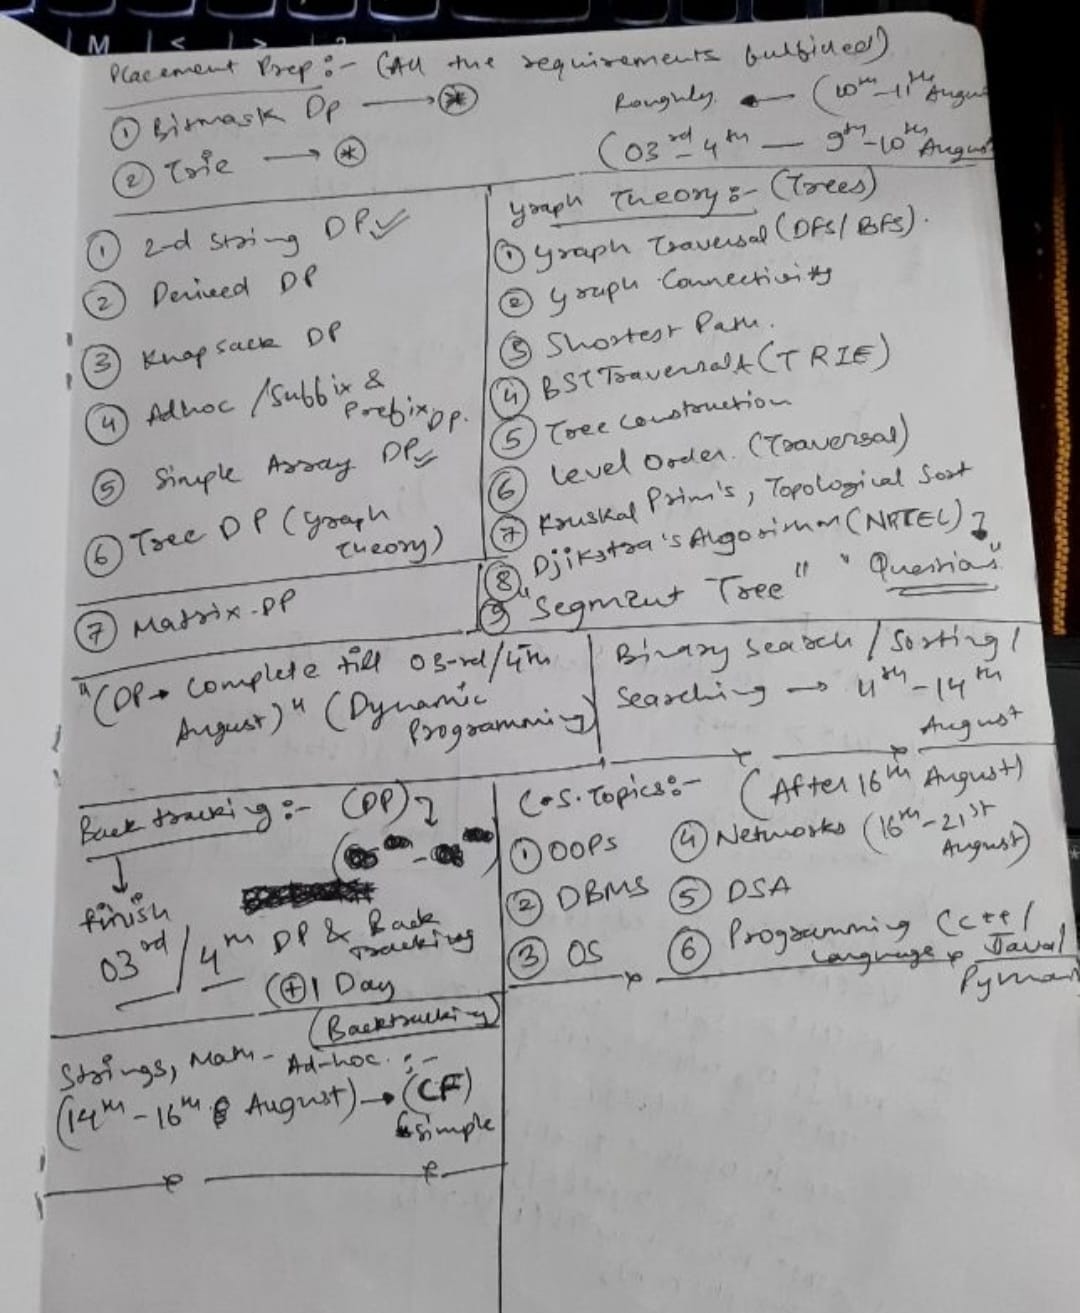 M < > ?
Placement Prep :- (All the requirements fulfilled)
① Bitmask Dp → *
② Trie → *
Roughly ← (10th-11th Augus
(03rd-4th — 9th-10th August
① 2-d string DP ✓
② Derived DP
③ Knapsack DP
④ Adhoc / Suffix &
Prefix DP.
⑤ Simple Array DP ✓
⑥ Tree DP (Graph
Theory)
⑦ Matrix-DP
Graph Theory :- (Trees)
① Graph Traversal (DFS/BFS).
② Graph Connectivity
③ Shortest Path.
④ BST Traversal (TRIE)
⑤ Tree Construction
⑥ Level Order. (Traversal)
⑦ Kruskal Prim's, Topological Sort
⑧ Djikstra's Algorithm (NPTEL)
⑨ "Segment Tree" "Questions"
"(DP → Complete till 03-rd/4th
August)" (Dynamic
Programming)
Binary Search / Sorting /
Searching → 11th-14th
August
Backtracking :- (DP)
↓
finish
03rd/4th DP & Back
tracking
(+) 1 Day
(Backtracking)
C.S. Topics :- (After 16th August)
① OOPS ④ Networks (16th-21st
August)
② DBMS ⑤ DSA
③ OS ⑥ Programming (C++/
Language Java/
Python
Strings, Math - Ad-hoc. :-
(14th-16th August) → (CF)
simple